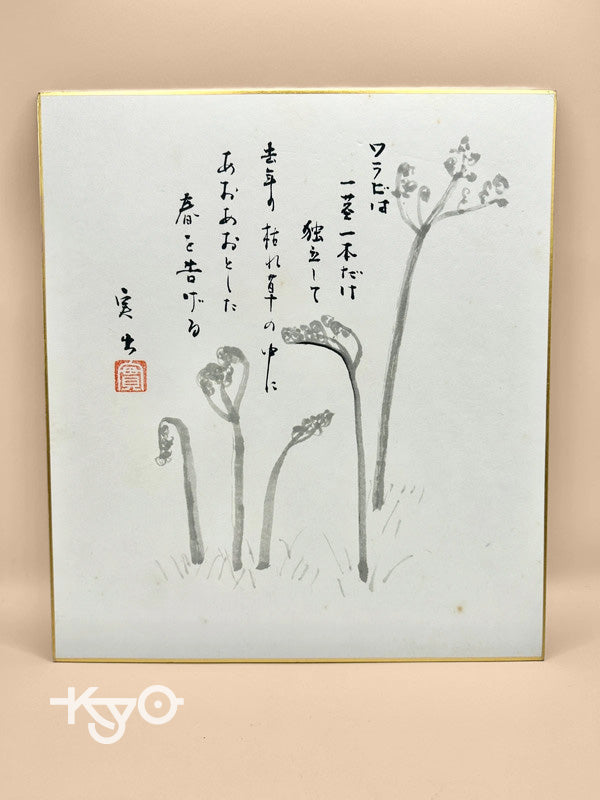 ワラビは
一茎一本だけ
独立して
去年の枯れ草の中に
あおあおとした
春を告げる
実
實
KYO